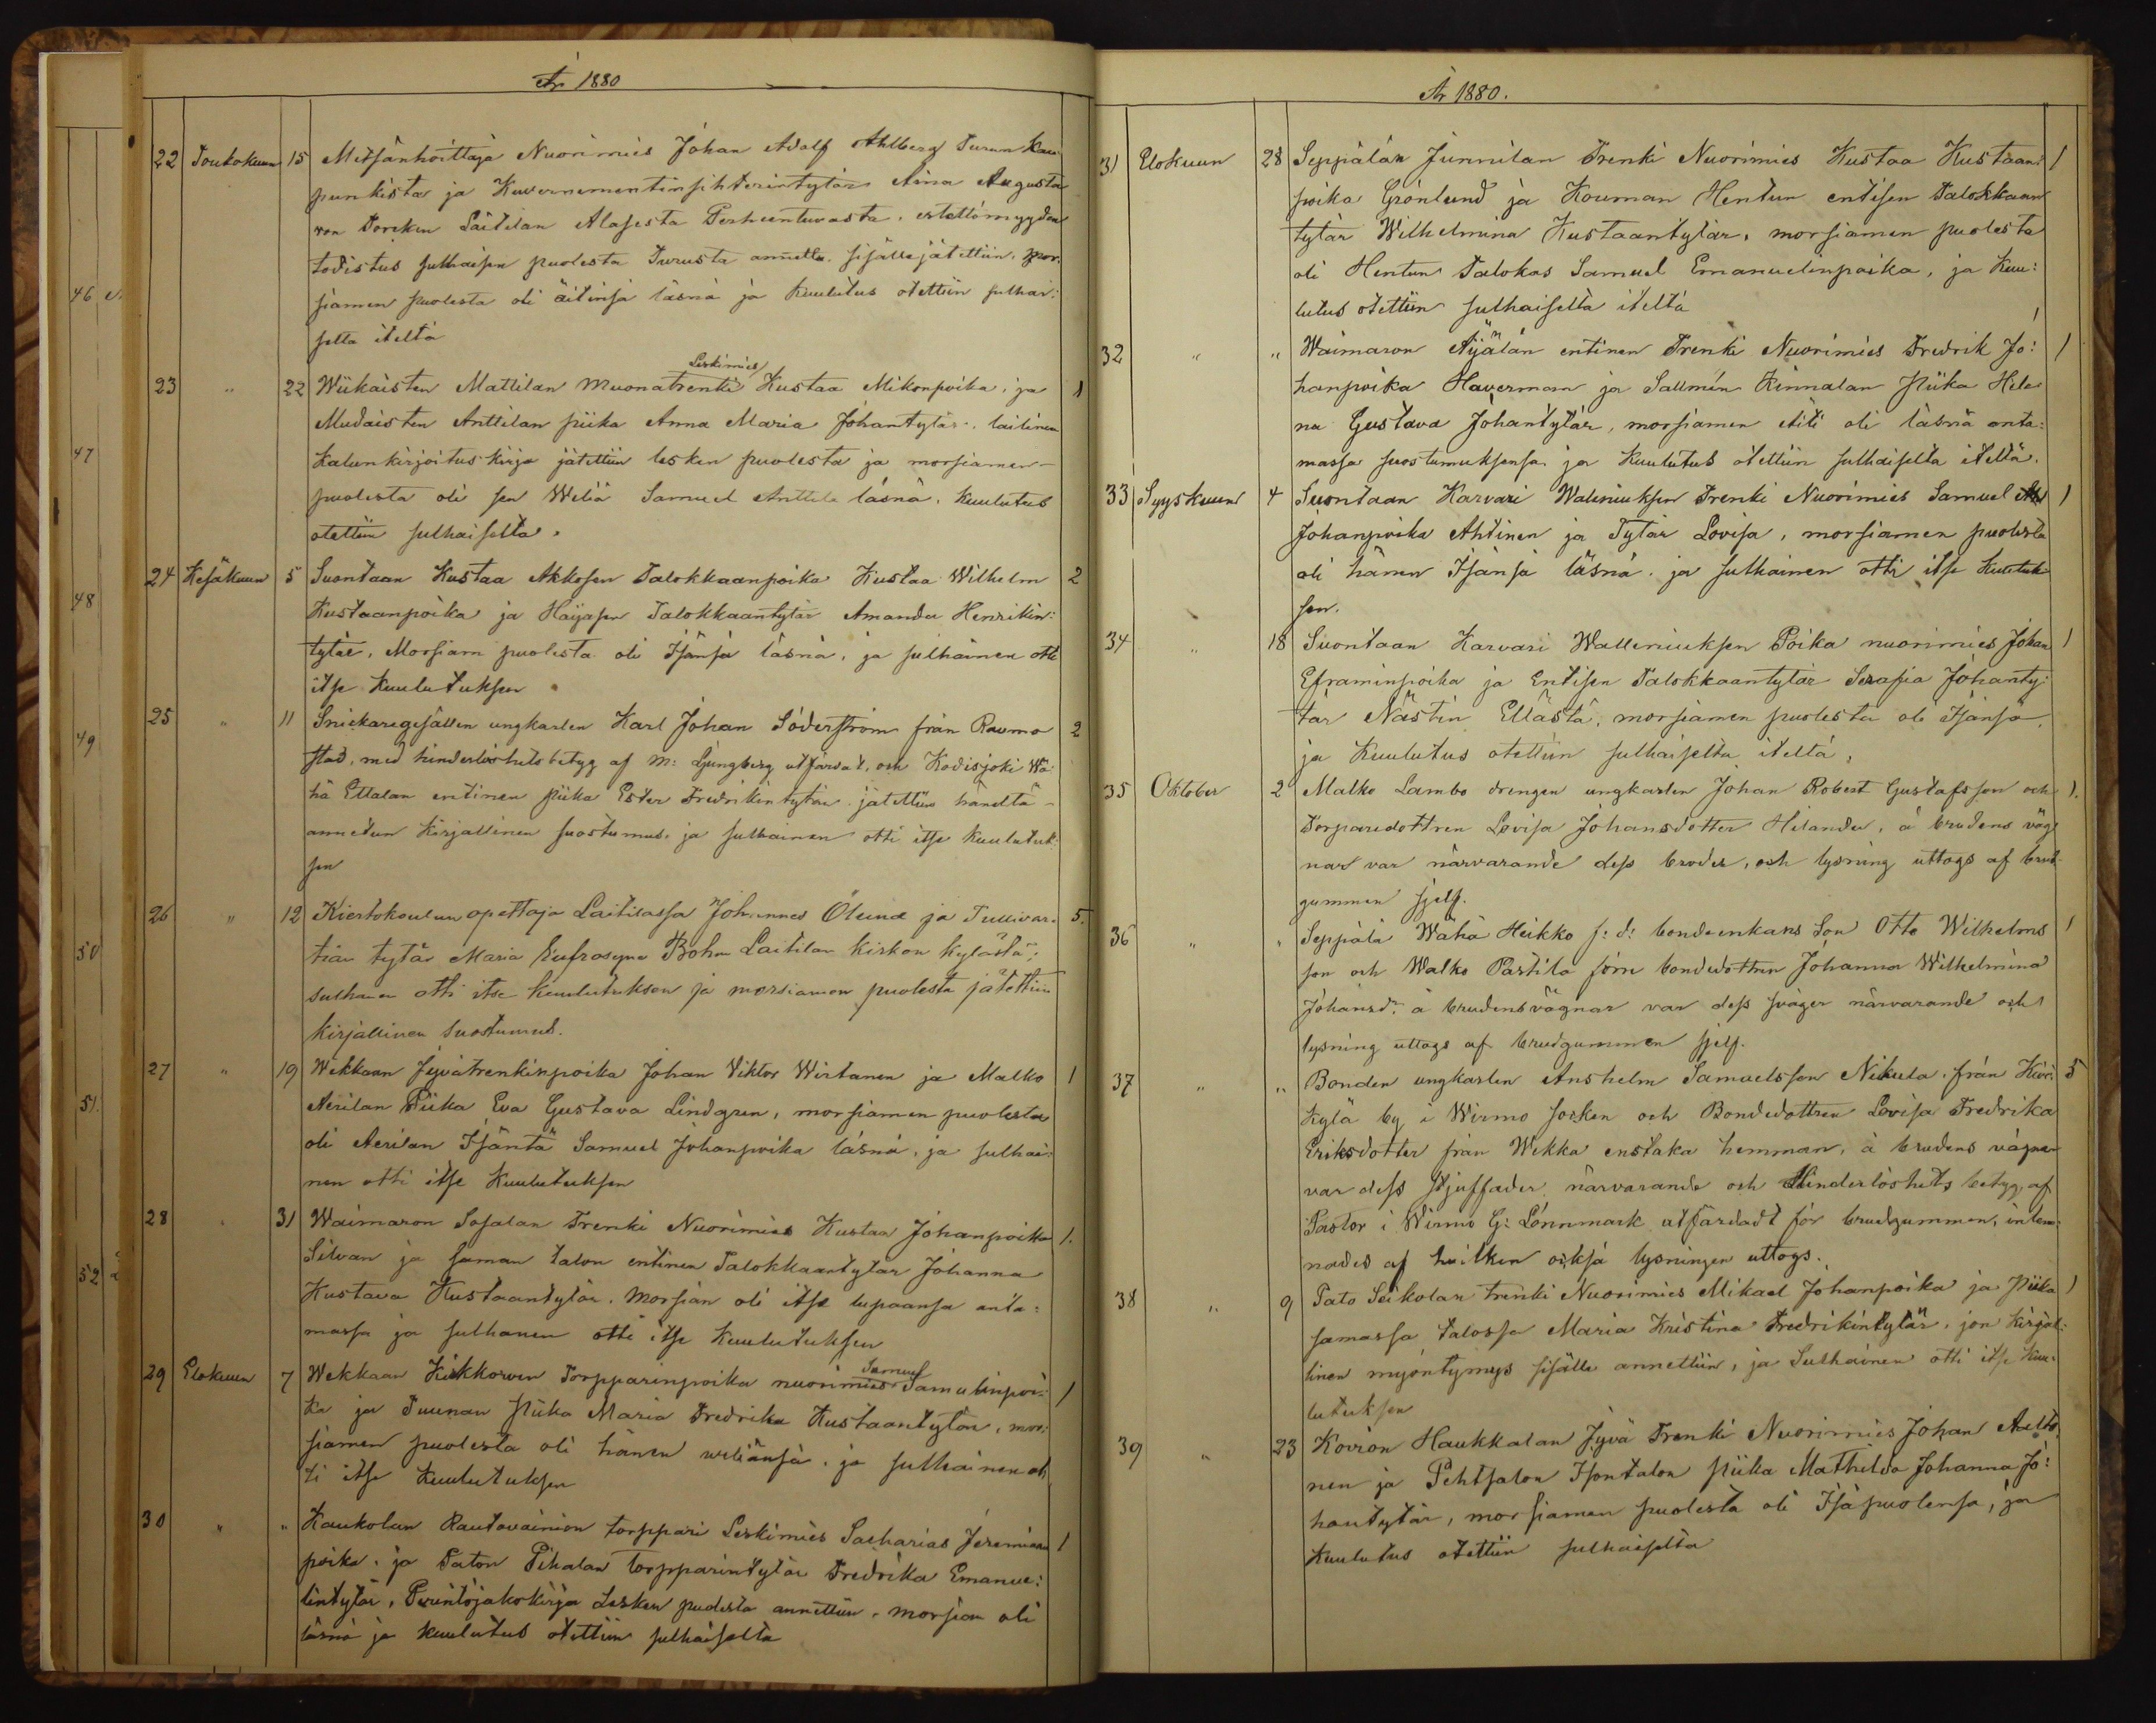 År 1880
22 Toukokuun 15 Metsänhoittaja Nuorimies Johan Adolf Ahlberg Turun Kau-
punkista ja Kuvernementinsihterintytär Aina Augusta
von Torcken Laitilan Alasesta Perheentuvasta, estettömyyden
todistus sulhaisen puolesta Turusta annettu sisälle jätettiin, mor-
siamen puolesta oli äitinsä läsnä ja Kuulutus otettiin sulhai:
selta iteltä
Leskimies
23 " 22 Wiikaisten Mattilan muonatrenki Kustaa Mikonpoika, ja 1
Mudaisten Anttilan piika Anna Maria Johantytär, laitinen
Kalunkirjoitus Kirja jätettiin lesken puolesta ja morsiamen-
puolesta oli sen Weliä Samuel Anttila läsnä. Kuulutus
otettiin sulhaiselta.
24 Kesäkuun 5 Suontaan Kustaa Akkosen Talokkaanpoika Kustaa Wilhelm 2
Kustaanpoika ja Haijasen Talokkaantytär Amanda Henrikin:
tytär, Morsiam puolesta oli Isänsä läsnä, ja sulhainen otti
itse Kuulutuksen
25 " 11 Snickaregesällen ungkarlen Karl Johan Söderström från Raumo 2
stad, med hinderlöshetsbetyg af M: Ljungberg utfärdat, och Kodisjoki Wä-
hä Ettalan entinen piika Ester Fredrikintytär jätettiin häneltä-
annetun Kirjallinen suostumus, ja sulhainen otti itse Kuulutuk:
sen
26 " 12 Kiertokoulun opettaja Laitilassa Johannes Ölund ja Tullivar- 5.
tian tytär Maria Eufrosyne Bohm Laitilan Kirkon Kylästä;
sulhanen otti itse kuulutuksen ja morsiamen puolesta jätettiin
kirjallinen suostumus.
27 " 19 Wekkaan Jyvätrenkinpoika Johan Viktor Wirtanen ja Malko 1
Aerilan Piika Eva Gustava Lindgren, morsiamen puolesta
oli Aerilan Isäntä Samuel Johanpoika läsnä, ja sulhai:
nen otti itse Kuulutuksen
28 " 31 Waimaron Sosalan Trenki Nuorimies Kustaa Johanpoika 1.
Silvan ja saman talon entinen Talokkaantytär Johanna
Kustava Kustaantytär. Morsian oli itse lupaansa anta:
massa ja sulhanen otti itse Kuulutuksen
29 Elokuun 7 Wekkaan Kikkorven Torpparinpoika nuorimies Samuel Samulinpoi: 1
ka ja Tuunan Piika Maria Fredrika Kustaantytär, mor:
siamen puolesta oli hänen weliänsä, ja sulhainen ot
ti itse Kuulutuksen
30 " " Kaukolan Rautavainion torppari Leskimies Sacharias Jeremian 1
poika, ja Paton Pihalan torpparintytär Fredrika Emanue:
lintytär, Perintöjakokirja Lesken puolesta annettiin, morsian oli
läsnä ja kuulutus otettiin sulhaiselta
46
47
48
49
50
51.
52
År 1880.
31 Elokuun 28 Seppälän Junnilan Trenki Nuorimies Kustaa Kustaan: 1
poika Grönlund ja Kouman Hentun entisen Talokkaan
tytär Wilhelmina Kustaantytär, morsiamen puolesta
oli Hentun Talokas Samuel Emanuelinpoika, ja Kuu:
lutus otettiin sulhaiselta iteltä
32 " " Waimaron Äijälän entinen Trenki Nuorimies Fredrik Jo: 1
hanpoika Haverman ja Sallmén Kinnalan Piika Hele
na Gustava Johantytär, morsiamen äiti oli läsnä anta:
massa suostumuksensa, ja Kuulutus otettiin sulhaiselta iteltä.
33 Syyskuun 4 Suontaan Karvari Waleniuksen Trenki Nuorimies Samuel 1
Johanpoika Ahtinen ja Tytär Lovisa, morsiamen puolesta
oli hänen Isänsä läsnä, ja sulhainen otti itse Kuulutuk
sen.
34 " 18 Suontaan Karvari Walleniuksen Poika nuorimies Johan 1
Eframinpoika ja Entisen Talokkaantytär Serafia Johanty:
tär Nästin Ellästä, morsiamen puolesta oli Isänsä,
ja Kuulutus otettiin sulhaiselta iteltä,
35 Oktober 2 Malko Lambo drengen ungkarlen Johan Robert Gustafsson och 1.
Torparedottren Lovisa Johansdotter Helander, å brudens väg
nar var närvarande dess broder, och lysning uttogs af brud-
gummen sjelf.
36 " " Seppälä Wähä Heikko f: d: bondeenkans Son Otto Wilhelms 1
son och Walko Pärtilä förra bondedottren Johanna Wilhelmina
Johansd:r å brudens vägnar var dess svåger närvarande och
lysning uttogs af brudgummen sjelf.
37 " " Bonden ungkarlen Anshelm Samuelsson Nikula från Kivi: 5
Kylä by i Wirmo socken och Bondedottren Lovisa Fredrika
Eriksdotter från Wekka enstaka hemman, å brudens vägnar
var dess stjuffader närvarande och Hinderlöshets betyg, af
Pastor i Wirmo G: Lönnmark utfärdadt för brudgummen, inläm:
nades af hvilken också lysningen uttogs.
38 " 9 Pato Seikolan trenki Nuorimies Mikael Johanpoika ja Piika 1
samassa talossa Maria Kristina Fredrikintytär, jon Kirjal:
linen myöntymys sisälle annettiin, ja Sulhainen otti itse Kuu:
lutuksen
39 " 23 Kovion Haukkalan Jyvä Trenki Nuorimies Johan Aalto:
nen ja Pehtsalon Isontalon Piika Mathilda Johanna Jo:
hantytär, morsiamen puolesta oli Isäpuolensa, ja
Kuulutus otettiin sulhaiselta